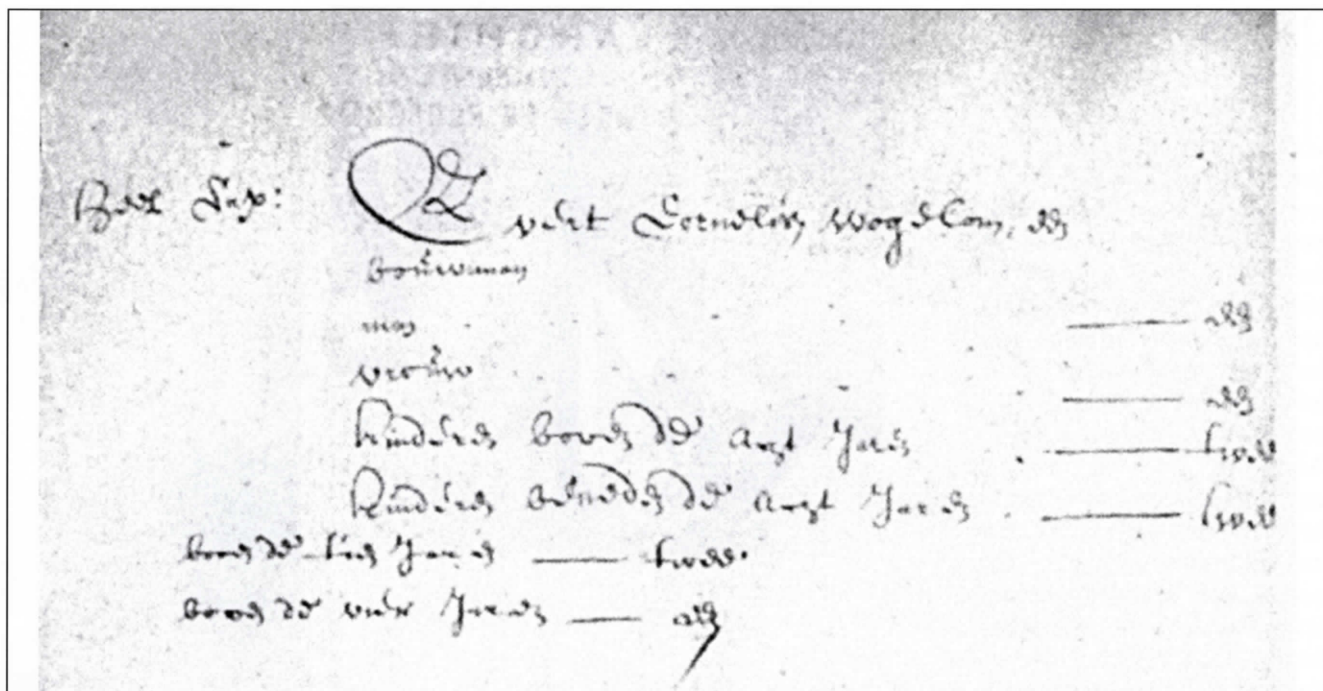 Heel Cap: Evert Cornelisz Vogelom, een
bouwman
man een
vrouw een
kinderen boven de acht Jaren twee
kinderen beneden de acht Jaren twee
boven de tien Jaren twee
boven de vier Jaren een